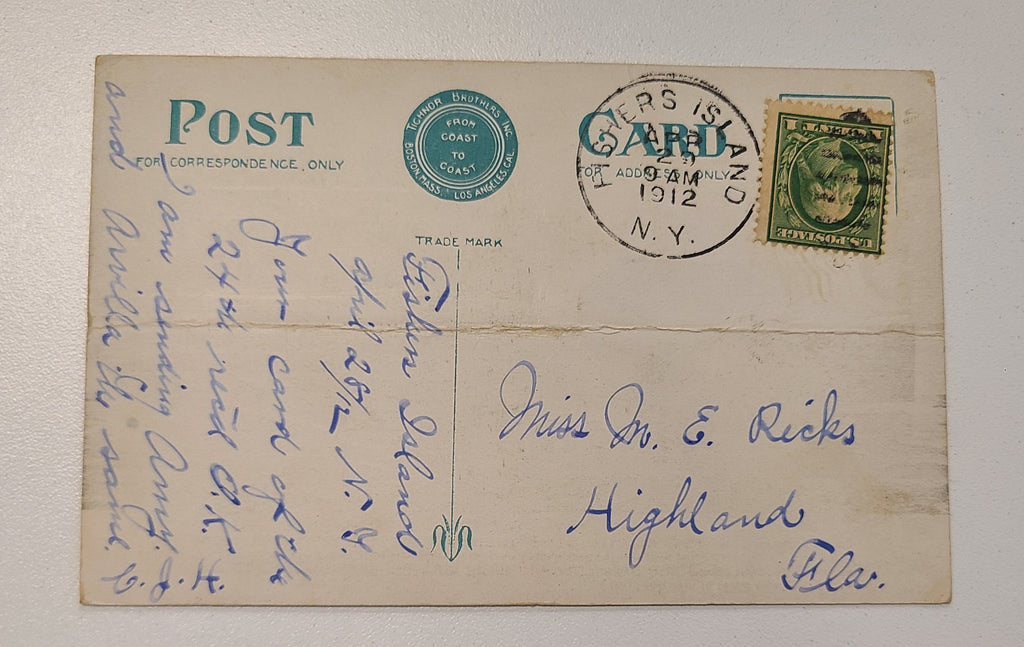 POST CARD
FOR CORRESPONDENCE ONLY
FOR ADDRESS ONLY
TICHNOR BROTHERS INC.
BOSTON, MASS. LOS ANGELES, CAL.
FROM
COAST
TO
COAST
TRADE MARK
FISHERS ISLAND
APR
29
9 AM
1912
N. Y.
U.S. POSTAGE
Fishers Island
april 28/12 N. Y.
Your card of the
24th rec'd O.K.
I am sending Amy.
and Arvilla the same.
Miss M. E. Ricks
Highland
Fla.